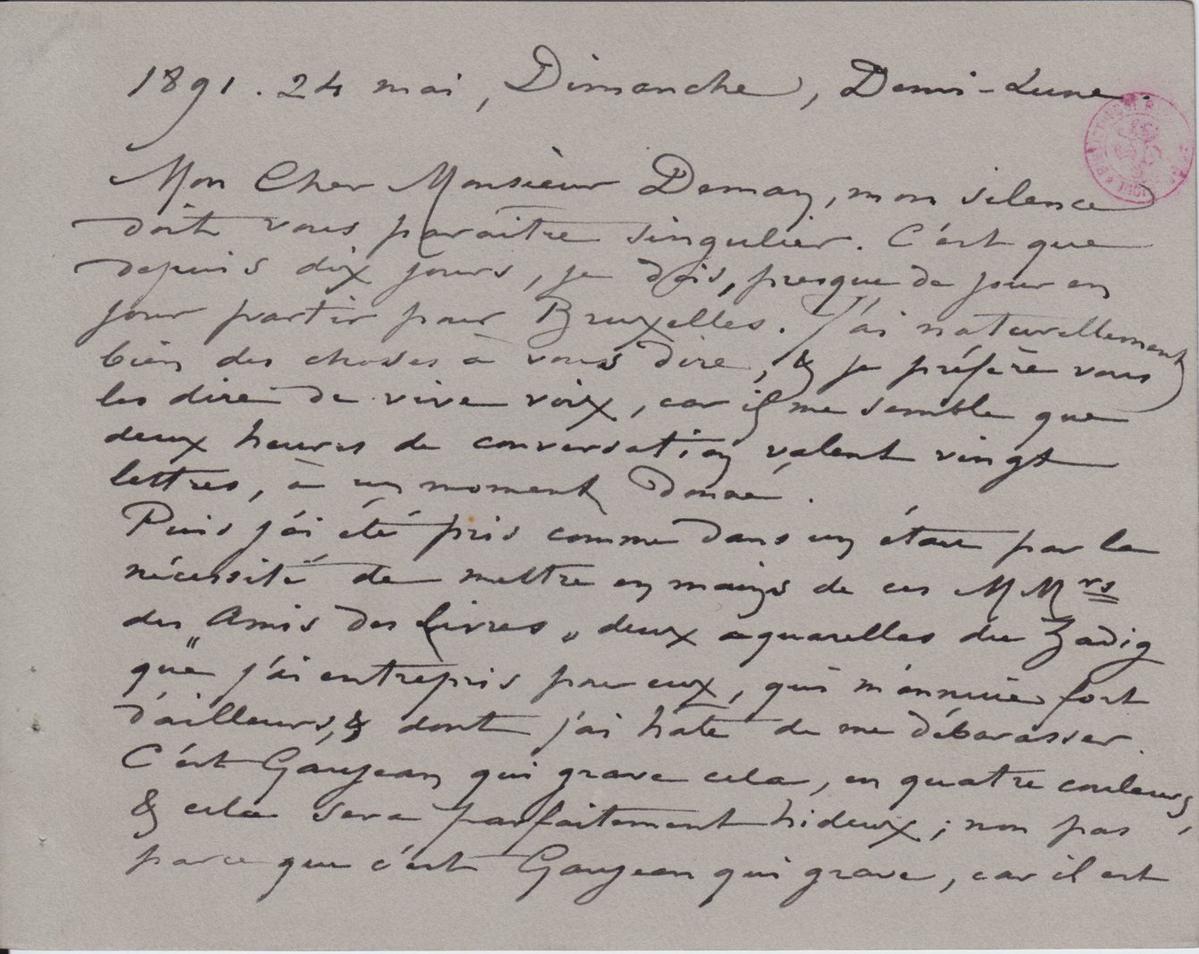 1891. 24 mai, Dimanche, Demi-Lune.
Mon Cher Monsieur Deman, mon silence
doit vous paraître singulier. C'est que
depuis dix jours, je dois, presque de jour en
jour partir pour Bruxelles. J'ai naturellement
bien des choses à vous dire, & je préfère vous
les dire de vive voix, car il me semble que
deux heures de conversation valent vingt
lettres, à un moment donné.
Puis j'ai été pris comme dans un étau par la
nécessité de mettre en mains de ces MMrs
des "Amis des Livres" deux aquarelles du Zadig
que j'ai entrepris pour eux, qui m'ennuie fort
d'ailleurs, & dont j'ai hâte de me débarasser.
C'est Gaujean qui grave cela, en quatre couleurs,
& cela sera parfaitement hideux ; non pas
parce que c'est Gaujean qui grave, car il est